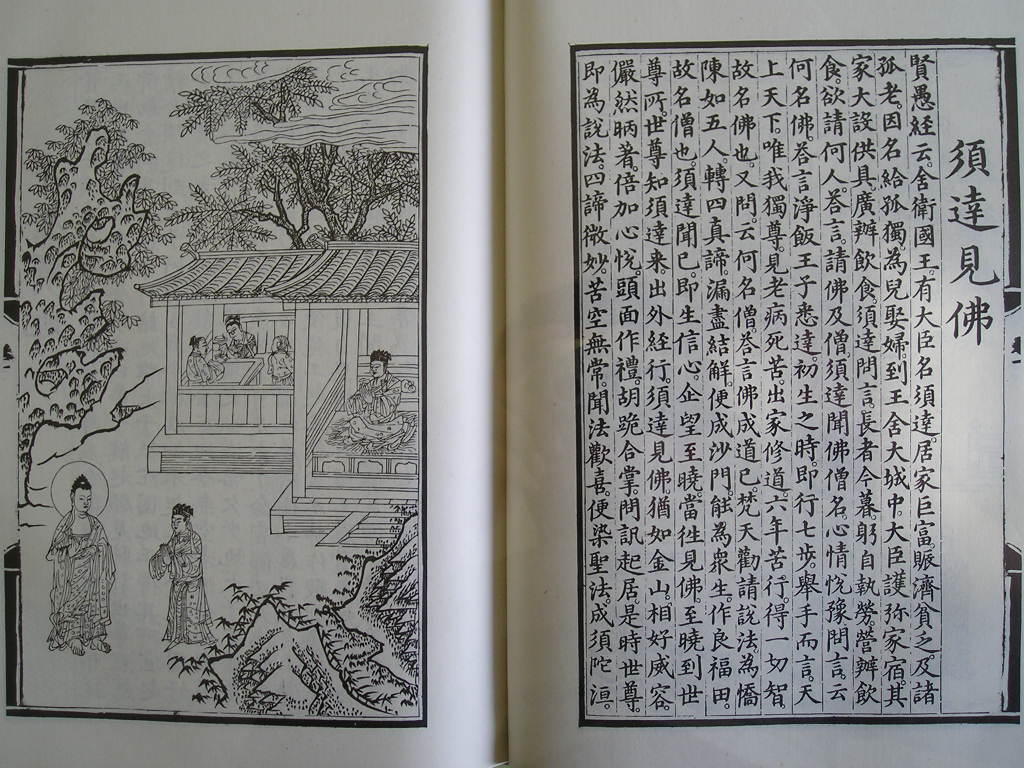 須達見佛
賢愚經云。舍衛國王。有大臣名須達。居家巨富賑濟貧乏。及諸
孤老。因名給孤獨為兒娶婦。到王舍大城中。大臣護弥家宿。其
家大設供具。廣辦飲食。須達問言。長者今暮。躬自執勞。營辦飲
食。欲請何人。荅言。請佛及僧。須達聞佛僧名。心情悅豫。問言。云
何名佛。荅言淨飯王子悉達。初生之時。即行七步。舉手而言。天
上天下。唯我獨尊。見老病死苦。出家修道。六年苦行。得一切智
故名佛也。又問云何名僧。荅言佛成道已。梵天勸請說法。為憍
陳如五人。轉四真諦。漏盡結解。便成沙門。能為衆生作良福田。
故名僧也。須達聞已。即生信心。企望至曉。當徃見佛。至曉到世
尊所。世尊知須達来。出外経行。須達見佛。猶如金山。相好威容。
儼然昞著。倍加心悅。頭面作禮。胡跪合掌。問訊起居。是時世尊。
即為說法。四諦微妙。苦空無常。聞法歡喜。便染聖法。成須陀洹。